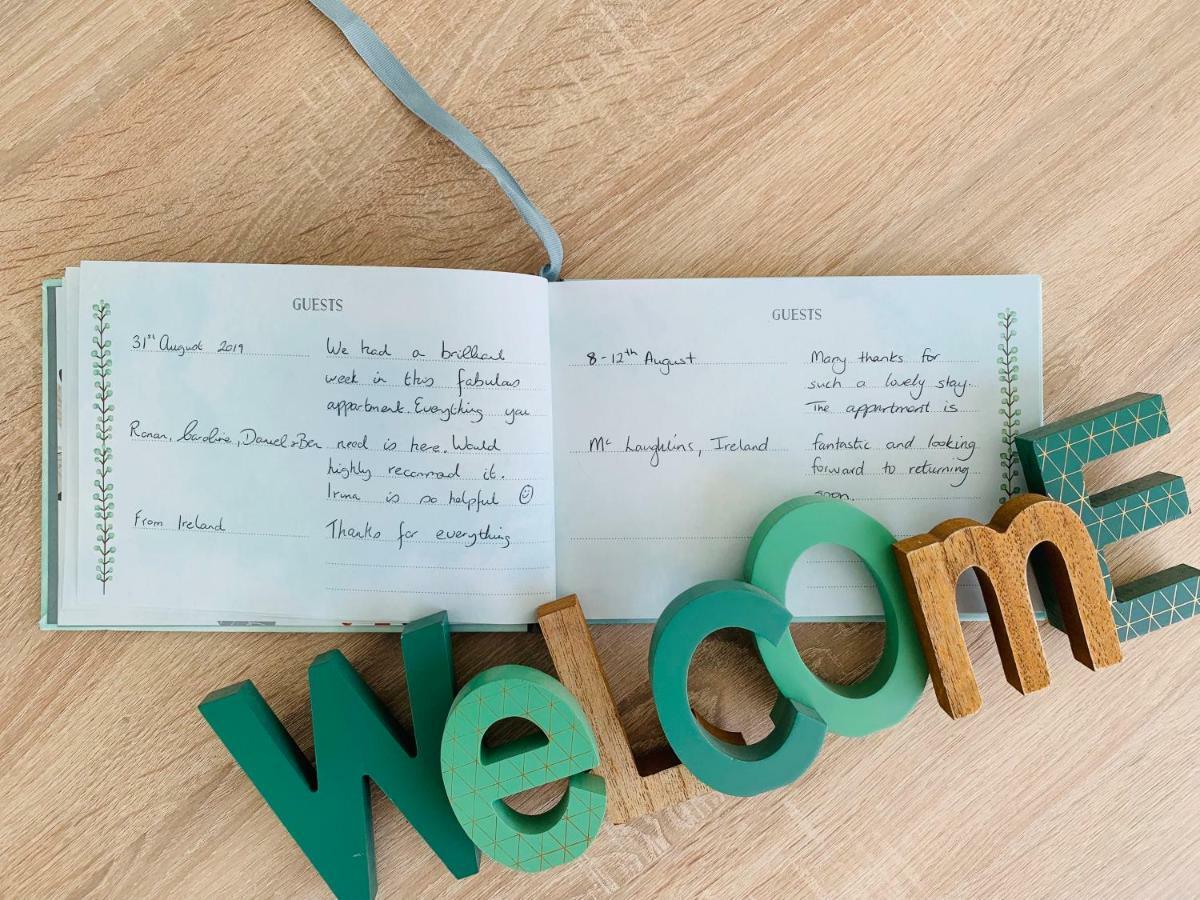 GUESTS
31st August 2019
We had a brilliant
week in this fabulous
appartment. Everything you
Ronan, Caroline, Daniel & Ben
need is here. Would
highly recommend it.
Irina is so helpful ☺
From Ireland
Thanks for everything
GUESTS
8-12th August
Many thanks for
such a lovely stay.
The appartment is
Mc Laughlins, Ireland
fantastic and looking
forward to returning
soon.
WeLcOmE